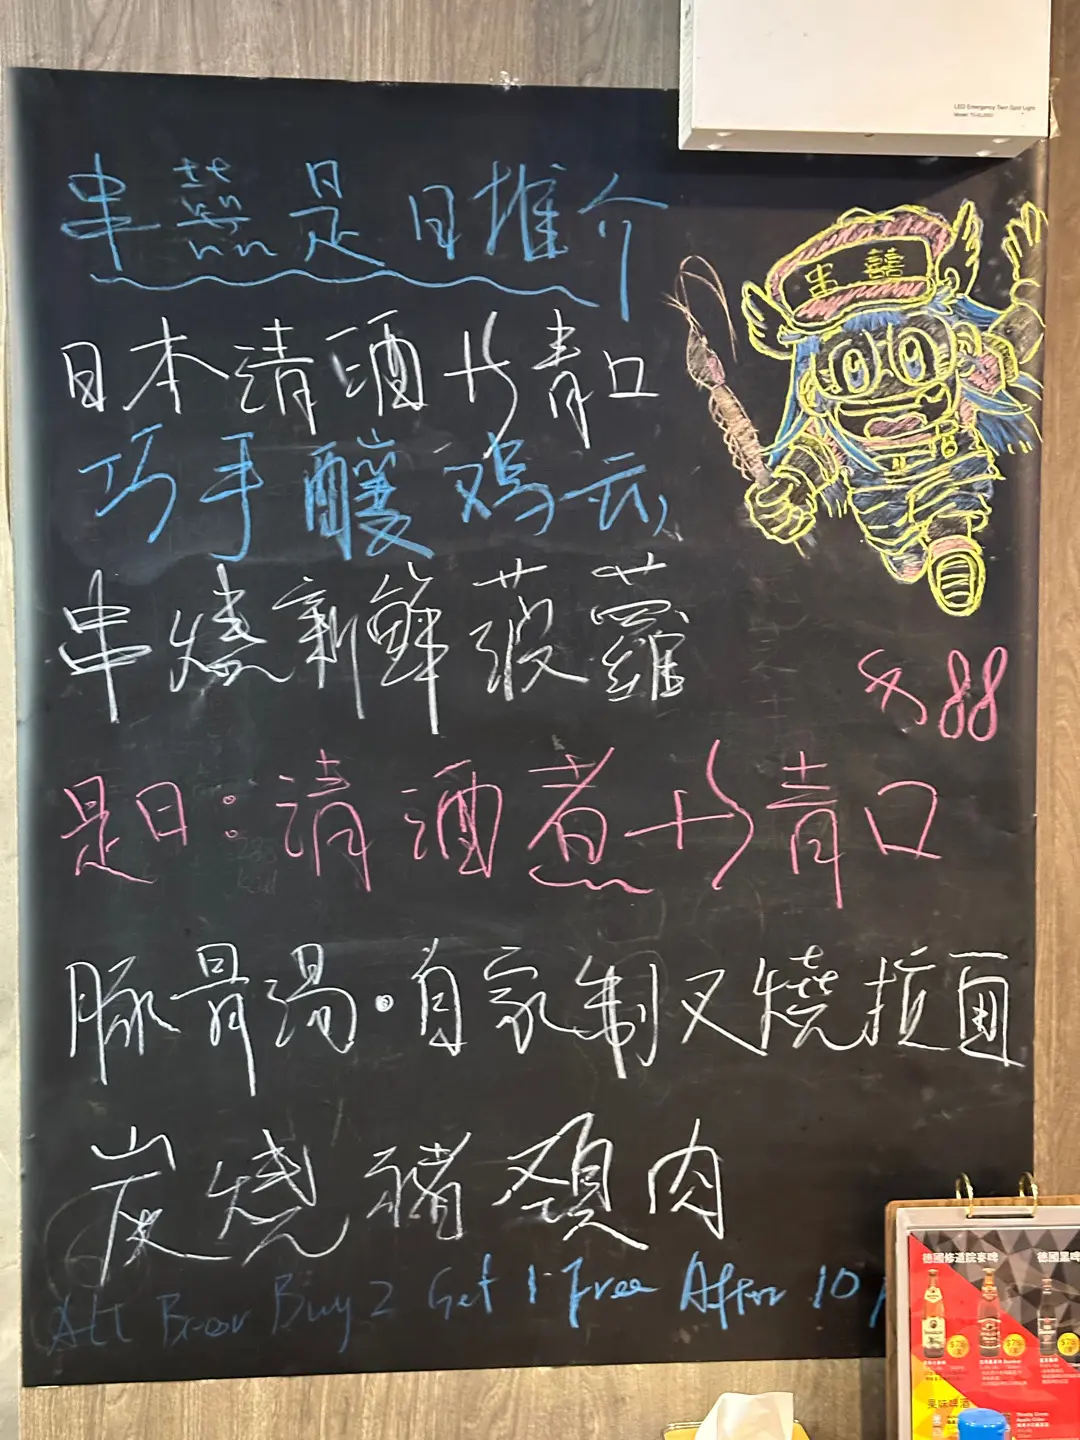 LED Emergency Twin Spot Light
串囍是日推介
串囍
日本清酒 青口
巧手釀鸡
串燒新鮮菠蘿
88
是日：清酒煮 青口
豚骨湯·自家制叉燒拉面
炭燒豬頸肉
All Beer Buy 2 Get 1 Free After 10 P
德國修道院麥啤 德國黑啤
$78 $78 $78
果味啤酒